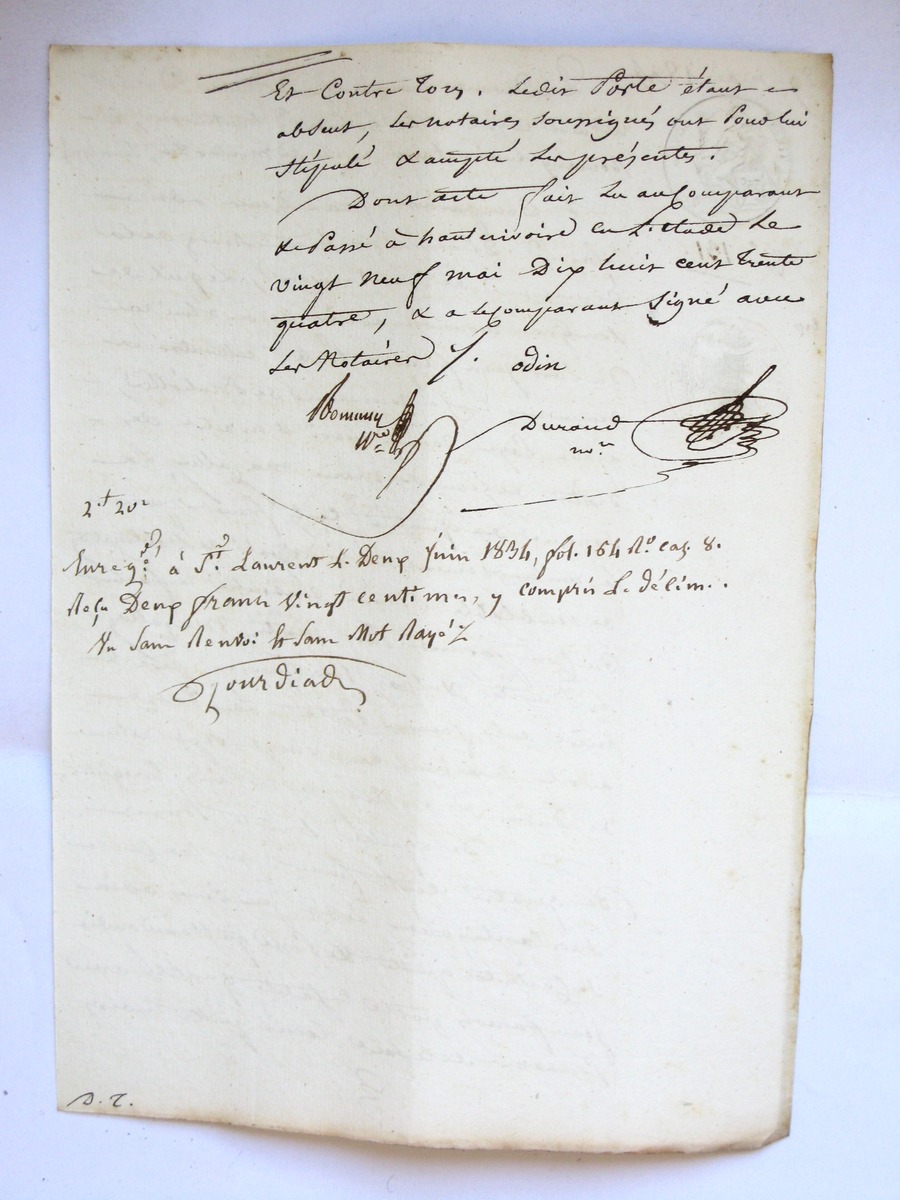 Et Contre Tous. Ledit Porte étant
absent, les notaires soussignés ont Pour lui
stipulé & accepté les présentes.
Dont acte fait lu au Comparant
& Passé à hauterivoire en L'Etude Le
vingt neuf mai Dix huit cent trente
quatre, & a le comparant Signé avec
Les Notaires /. odin
Nre
Durand
nore
2f 20c
Enregé à St Laurent le Deux Juin 1834, fol. 164 Ro. cas. 8.
Reçu Deux francs vingt centimes, y compris le décim.
Un sans Renvoi et sans Mot Rayé
D. T.